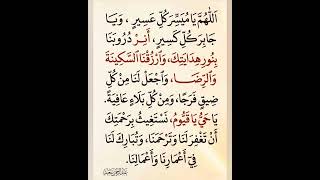 اللَّهُمَّ يَا مُيَسِّرَ كُلِّ عَسِيرٍ ، وَيَا
جَابِرَ كُلِّ كَسِيرٍ ، أَنِرْ دُرُوبَنَا
بِنُورِ هِدَايَتِكَ، وَارْزُقْنَا السَّكِينَةَ
وَالرِّضَا، وَاجْعَلْ لَنَا مِنْ كُلِّ
ضِيقٍ فَرَجًا، وَمِنْ كُلِّ بَلَاءٍ عَافِيَةً.
يَا حَيُّ يَا قَيُّومُ، نَسْتَغِيثُ بِرَحْمَتِكَ
أَنْ تَغْفِرَ لَنَا وَتَرْحَمَنَا، وَتُبَارِكَ لَنَا
فِي أَعْمَارِنَا وَأَعْمَالِنَا.